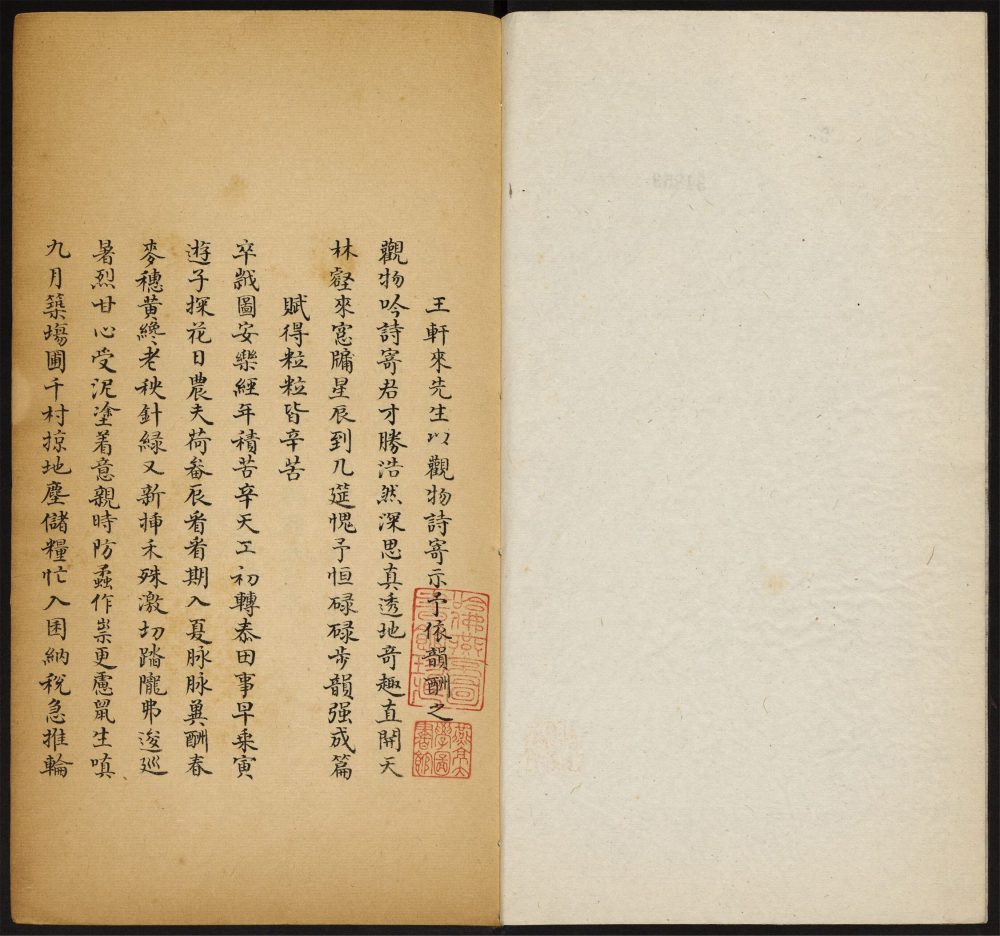 王軒來先生以觀物詩寄示予依韻酬之
觀物吟詩寄君才勝浩然深思真透地奇趣直開天
林壑來窓牖星辰到几筵愧予恒碌碌步韻强成篇
賦得粒粒皆辛苦
卒歲圖安樂經年積苦辛天工初轉泰田事早乘寅
遊子探花日農夫荷畚辰看看期入夏脉脉冀酬春
麥穗黄纔老秧針緑又新揷禾殊激切踏隴弗逡巡
暑烈甘心受泥塗着意親時防蟊作祟更慮鼠生嗔
九月築塲圃千村掠地塵儲糧忙入囷納税急推輪
哈佛燕京圖
燕京大
學圖
書館